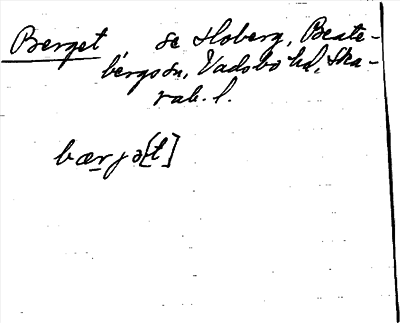 Berget, se Hoberg, Beate-
bergs sn, Vadsbo hd, Ska-
rab. l.
bærjə[t]